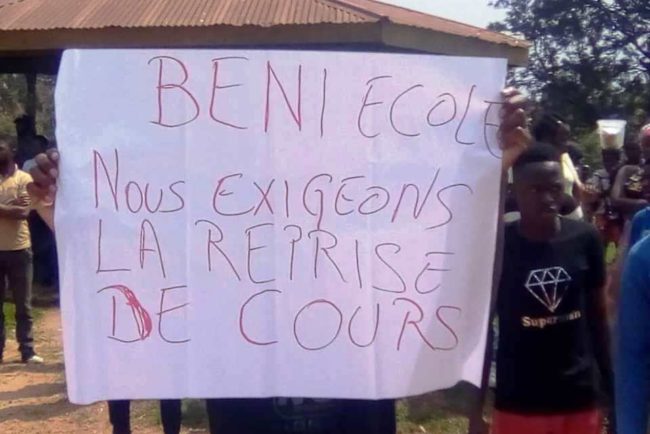 BENI ECOLE
NOUS EXIGEONS
LA REPRISE
DE COURS